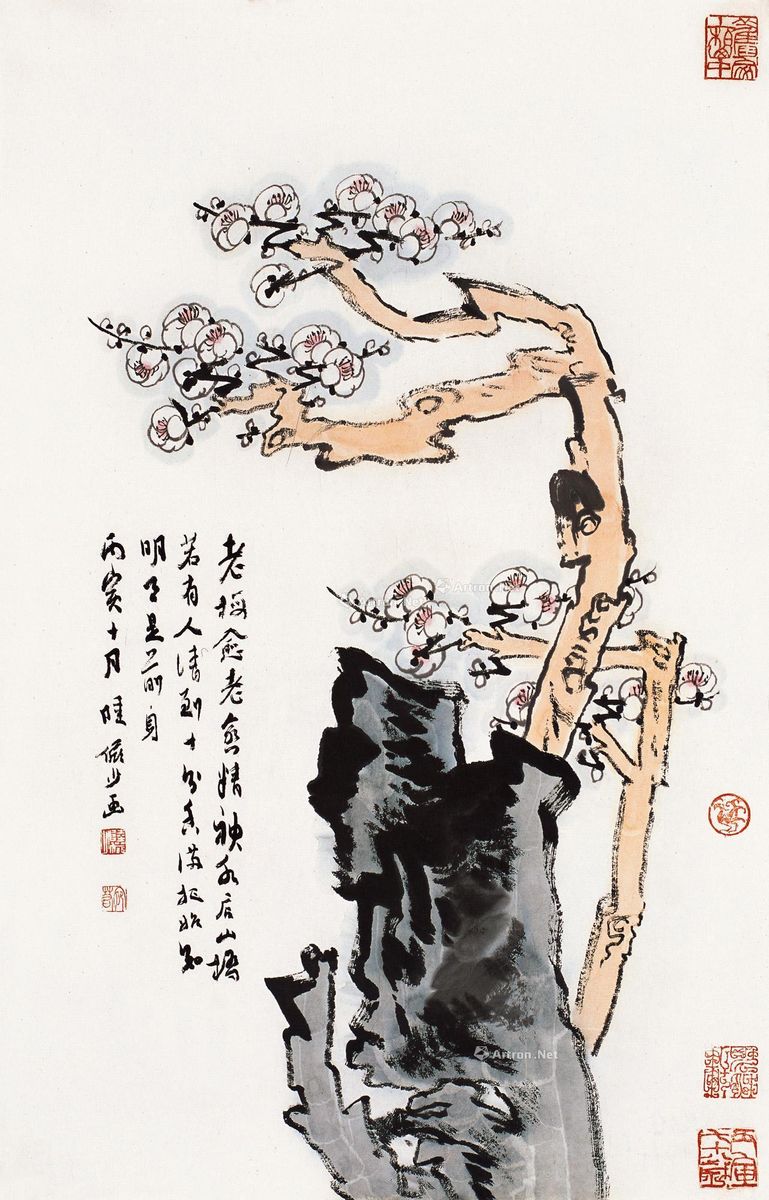 老梅愈老愈精神水店山樓
若有人清到十分寒滿把始知
明月是前身
丙寅十月陸儼少画
Artron.Net
Artron.Net